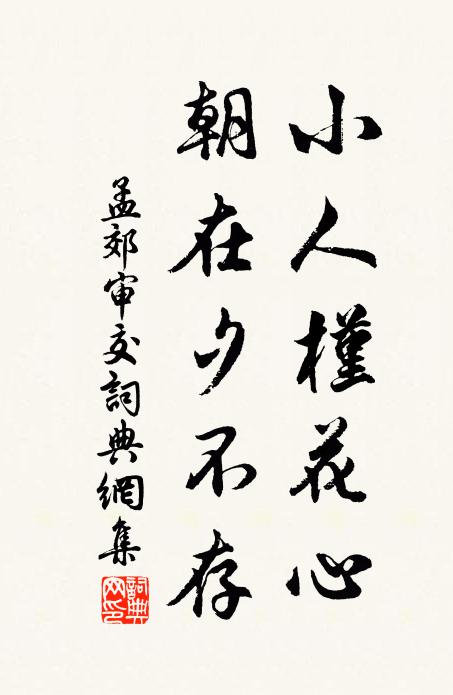 小人槿花心
朝在夕不存
孟郊审交詞典網集
詞典網印